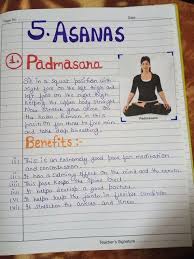 Date
5. ASANAS
1. Padmasana
Sit in a squat position with
right foot on the left thigh and
left foot on the right thigh
keeping the upper body straight.
Now stretch your arms on
the knees. Remain in this
position for three to five min
and take deep breathing.
Padmasana
Benefits :-
(i) This is an extremely good pose for meditation
and concentration.
(ii) It has a calming effect on the mind and the
(iii) This pose keeps the spine
(iv) It helps develop a good posture.
(v) It helps keep the joints in flexible condition
(vi) It stretches the ankles and knees
Teacher's Signature